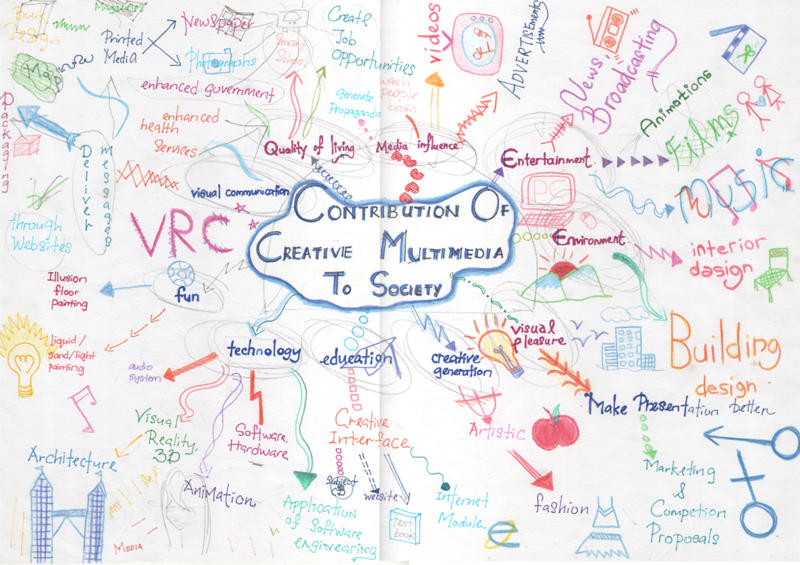 Magazines
Newspaper
Printed
Media
Photographs
Smart
School
Create
Job
Opportunities
videos
ADVERTISEments
News
Broadcasting
Map
enhanced government
generate
Propaganda
wash
people
brain
Animations
Films
Packaging
Deliver
messages
enhanced
health
Services
Quality of living
Media influence
Entertainment
visual communication
PC
Music
through
Websites
VRC
CONTRIBUTION OF
CREATIVE MULTIMEDIA
TO SOCIETY
Environment
interior
design
Illusion
floor
painting
fun
liquid/
sand/light
painting
technology
education
creative
generation
visual
pleasure
Building
design
audio
system
Visual
Reality,
3D
Software
Hardware
Creative
Interface
Artistic
Make Presentation better
Architecture
Animation
Application
of Software
engineering
subject
website
text
book
Internet
Module
fashion
Marketing
&
Competion
Proposals
MEDIA